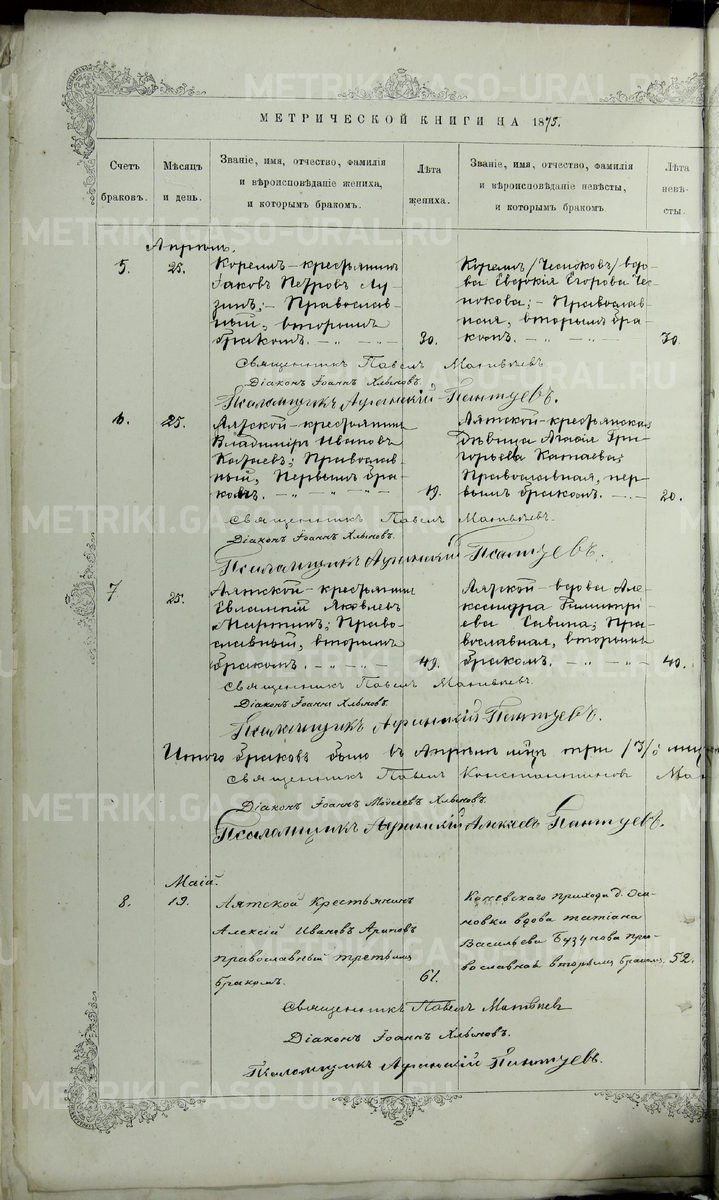 METRIKI.GASO-URAL.RU
МЕТРИЧЕСКОЙ КНИГИ НА 1875.
Счетъ браковъ.
Мѣсяцъ и день.
Званіе, имя, отчество, фамилія
и вѣроисповѣданіе жениха,
и которымъ бракомъ.
Лѣта жениха.
Званіе, имя, отчество, фамилія
и вѣроисповѣданіе невѣсты,
и которымъ бракомъ.
Лѣта невѣ-
сты.
Апрѣль.
5.
25.
крестьянинъ
Іаковъ Петровъ Лу-
зинъ; Православ-
ный, вторымъ
бракомъ.
30.
вдо-
ва Евдокія Егорова Чес-
нокова; Православ-
ная, вторымъ бра-
комъ.
30.
Священникъ Павелъ Матвѣевъ
Діаконъ Іоаннъ Хлыновъ.
Псаломщикъ Пантуевъ.
6.
25.
Аятской крестьянинъ
Владиміръ Ивановъ
Катаевъ; Православ-
ный, Первымъ бра-
комъ.
19.
Аятской крестьянская
дѣвица Гри-
горьева Катаева;
Православная, пер-
вымъ бракомъ.
20.
Священникъ Павелъ Матвѣевъ
Діаконъ Іоаннъ Хлыновъ.
Псаломщикъ Пантуевъ.
7
25.
Аятской крестьянинъ
Евлампій Яковлевъ
Право-
славный, вторымъ
бракомъ.
49.
Аятской вдова Але-
ксандра Димитрі-
ева Савина; Пра-
вославная, вторымъ
бракомъ.
40.
Священникъ Павелъ Матвѣевъ
Діаконъ Іоаннъ Хлыновъ.
Псаломщикъ Пантуевъ.
Итого браковъ было въ Апрѣлѣ три /3/
Священникъ Павелъ Константиновъ Мат
Діаконъ Іоаннъ Моисеевъ Хлыновъ.
Псаломщикъ Пантуевъ.
Маія.
8.
19.
Аятской Крестьянинъ
Алексій Ивановъ
православный третьимъ
бракомъ.
61.
Коневскаго прихода д. Оси-
новки вдова татіана
Васильева Бузунова пра-
вославная вторымъ бракомъ.
52.
Священникъ Павелъ Матвѣев
Діаконъ Іоаннъ Хлыновъ.
Псаломщикъ Пантуевъ.